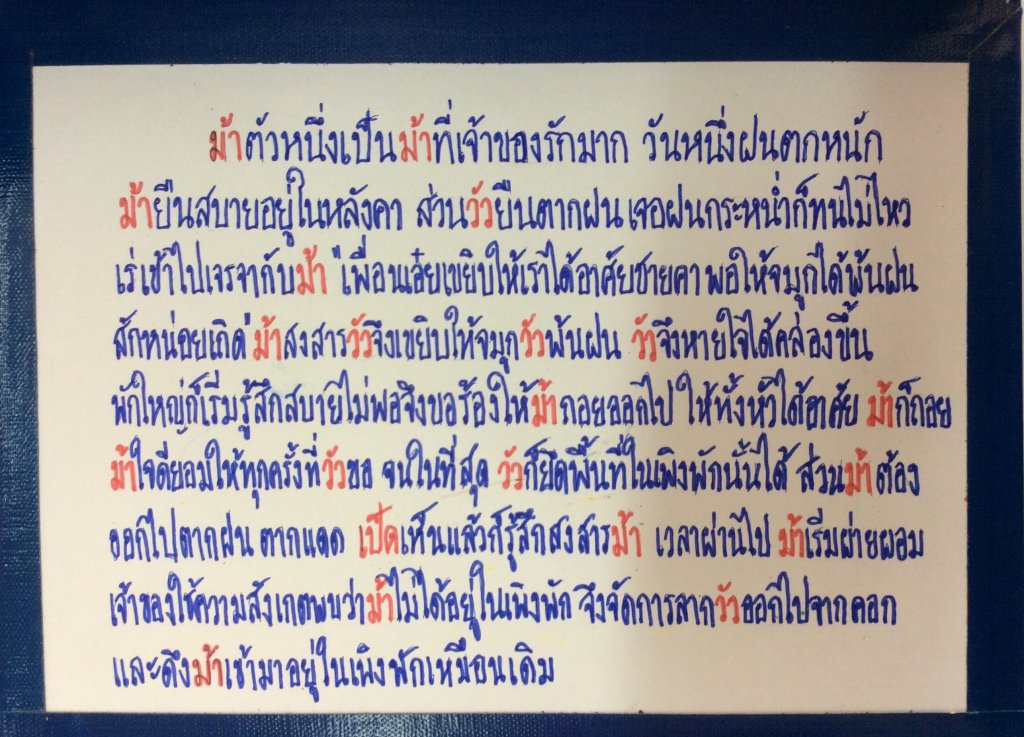 ม้าตัวหนึ่งเป็นม้าที่เจ้าของรักมาก วันหนึ่งฝนตกหนัก
ม้ายืนสบายอยู่ในหลังคา ส่วนวัวยืนตากฝน เจอฝนกระหน่ำก็ทนไม่ไหว
เร่เข้าไปเจรจากับม้า "เพื่อนเอ๋ยเขยิบให้เราได้อาศัยชายคา พอให้จมูกได้พ้นฝน
สักหน่อยเถิด" ม้าสงสารวัวจึงเขยิบให้จมูกวัวพ้นฝน วัวจึงหายใจได้คล่องขึ้น
พักใหญ่ก็เริ่มรู้สึกสบายไม่พอจึงขอร้องให้ม้าถอยออกไป ให้ทั้งหัวได้อาศัย ม้าก็ถอย
ม้าใจดียอมให้ทุกครั้งที่วัวขอ จนในที่สุด วัวก็ยึดพื้นที่ในเพิงพักนั้นได้ ส่วนม้าต้อง
ออกไปตากฝน ตากแดด เป็ดเห็นแล้วก็รู้สึกสงสารม้า เวลาผ่านไป ม้าเริ่มผ่ายผอม
เจ้าของใช้ความสังเกตพบว่าม้าไม่ได้อยู่ในเพิงพัก จึงจัดการลากวัวออกไปจากคอก
และดึงม้าเข้ามาอยู่ในเพิงพักเหมือนเดิม